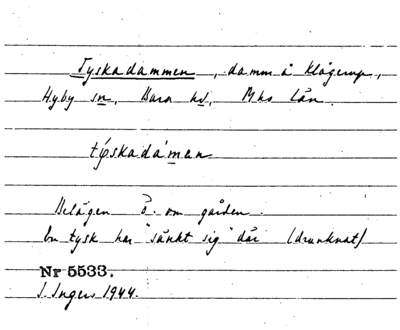 Tyskadammen, damm å Klågerup,
Hyby sn, Bara hd, Mhs län.
týskadámen
Belägen ö. om gården.
En tysk har "sänkt sig" där (drunknat)
Nr 5533.
I. Ingers 1944.